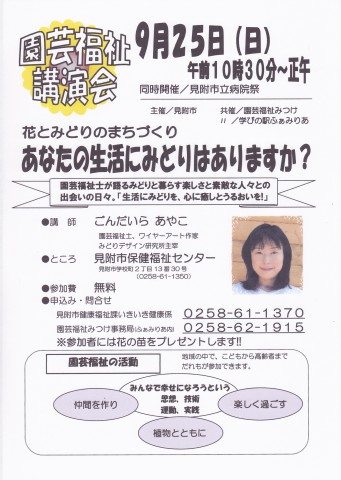 園芸福祉
講演会
9月25日（日）
午前10時30分～正午
同時開催／見附市立病院祭
主催／見附市　共催／園芸福祉みつけ
〃　／学びの駅ふぁみりあ
花とみどりのまちづくり
あなたの生活にみどりはありますか？
園芸福祉士が語るみどりと暮らす楽しさと素敵な人々との
出会いの日々。「生活にみどりを、心に癒しとうるおいを！」
●講　師　ごんだいら あやこ
園芸福祉士、ワイヤーアート作家
みどりデザイン研究所主宰
●ところ　見附市保健福祉センター
見附市学校町２丁目13番30号
（0258-61-1350）
●参加費　無料
●申込み・問合せ
見附市健康福祉課いきいき健康係　0258-61-1370
園芸福祉みつけ事務局（ふぁみりあ内）　0258-62-1915
※参加者には花の苗をプレゼントします!!
園芸福祉の活動
地域の中で、こどもから高齢者まで
だれもが参加できます。
みんなで幸せになろうという
思想、技術
運動、実践
仲間を作り
楽しく過ごす
植物とともに